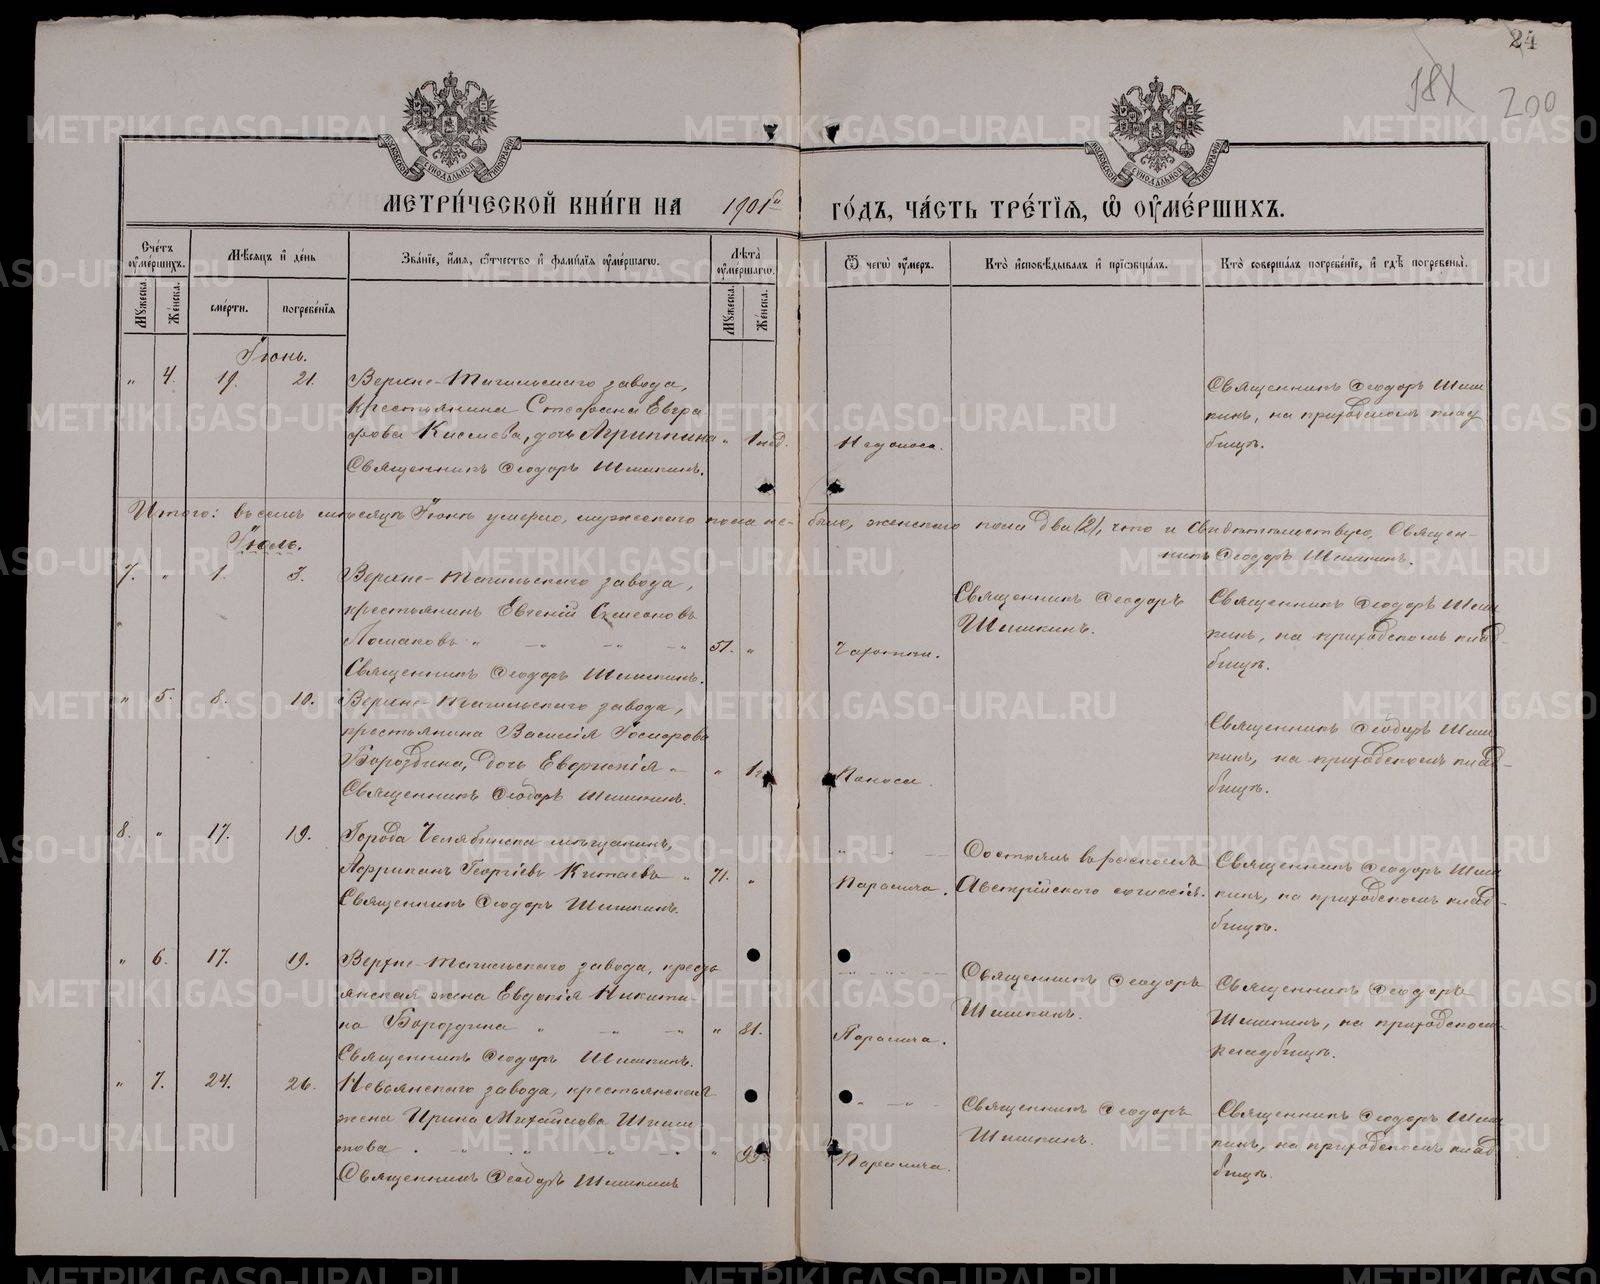 24
200
МЕТРИ́ЧЕСКОЙ КНИ́ГИ НА 1901й ГО́ДЪ, ЧА́СТЬ ТРЕ́ТІѦ, Ѽ ОУ҆МЕ́РШИХЪ.
Сче́тъ оу҆ме́ршихъ.
Мѣ́сяцъ и҆ де́нь
Зва́ніе, и҆́мя, ѻ҆́тчество и҆ фами́лія оу҆ме́ршагѡ.
Лѣ́та оу҆ме́ршагѡ.
Ѿ чегѡ̀ оу҆́меръ.
Кто̀ и҆сповѣ́дывалъ и҆ прїѡбща́лъ.
Кто̀ соверша́лъ погребе́ніе, и҆ гдѣ̀ погребены̀.
Мꙋ́жеска.
Же́нска.
сме́рти.
погребе́нія
Мꙋ́жеска.
Же́нска.
Іюнь.
" 4. 19. 21. Верхне-Тагильскаго завода,
крестьянина Стефана Евгра
фова Киселева, дочь Агриппина " 1 нед.
Священникъ Ѳеодоръ Шишкинъ.
Недоноса.
Священникъ Ѳеодоръ Шиш
кинъ, на приходскомъ клад
бищѣ.
Итого: въ семъ мѣсяцѣ Іюнѣ умерло, мужескаго пола не-было, женскаго пола два (2), что и свидѣтельствую, Священ-
никъ Ѳеодоръ Шишкинъ.
Іюль.
7. " 1. 3. Верхне-Тагильскаго завода,
крестьянинъ Евгеній Симеоновъ
Ломаковъ " 51. "
Священникъ Ѳеодоръ Шишкинъ.
Чахотки.
Священникъ Ѳеодоръ
Шишкинъ.
Священникъ Ѳеодоръ Шиш
кинъ, на приходскомъ клад-
бищѣ.
" 5. 8. 10. Верхне-Тагильскаго завода,
крестьянина Василія Іосифова
Бороздина, дочь Евдокія " 1
Священникъ Ѳеодоръ Шишкинъ.
Поноса.
Священникъ Ѳеодоръ Шиш
кинъ, на приходскомъ клад-
бищѣ.
8. " 17. 19. Города Челябинска мѣщанинъ,
Африканъ Георгіевъ Китаевъ " 71. "
Священникъ Ѳеодоръ Шишкинъ.
Паралича.
Состоялъ въ расколѣ
Австрійскаго согласія.
Священникъ Ѳеодоръ Шиш
кинъ, на приходскомъ клад-
бищѣ.
" 6. 17. 19. Верхне-Тагильскаго завода, кресть
янская жена Евдокія Никити-
на Бороздина " 81.
Священникъ Ѳеодоръ Шишкинъ.
Паралича.
Священникъ Ѳеодоръ
Шишкинъ.
Священникъ Ѳеодоръ
Шишкинъ, на приходском-
кладбищѣ.
" 7. 24. 26. Невьянскаго завода, крестьянская
жена Ирина Михайлова Шиш
кова
Священникъ Ѳеодоръ Шишкинъ
Паралича.
Священникъ Ѳеодоръ
Шишкинъ.
Священникъ Ѳеодоръ Шиш
кинъ, на приходскомъ клад
бищѣ.
METRIKI.GASO-URAL.RU